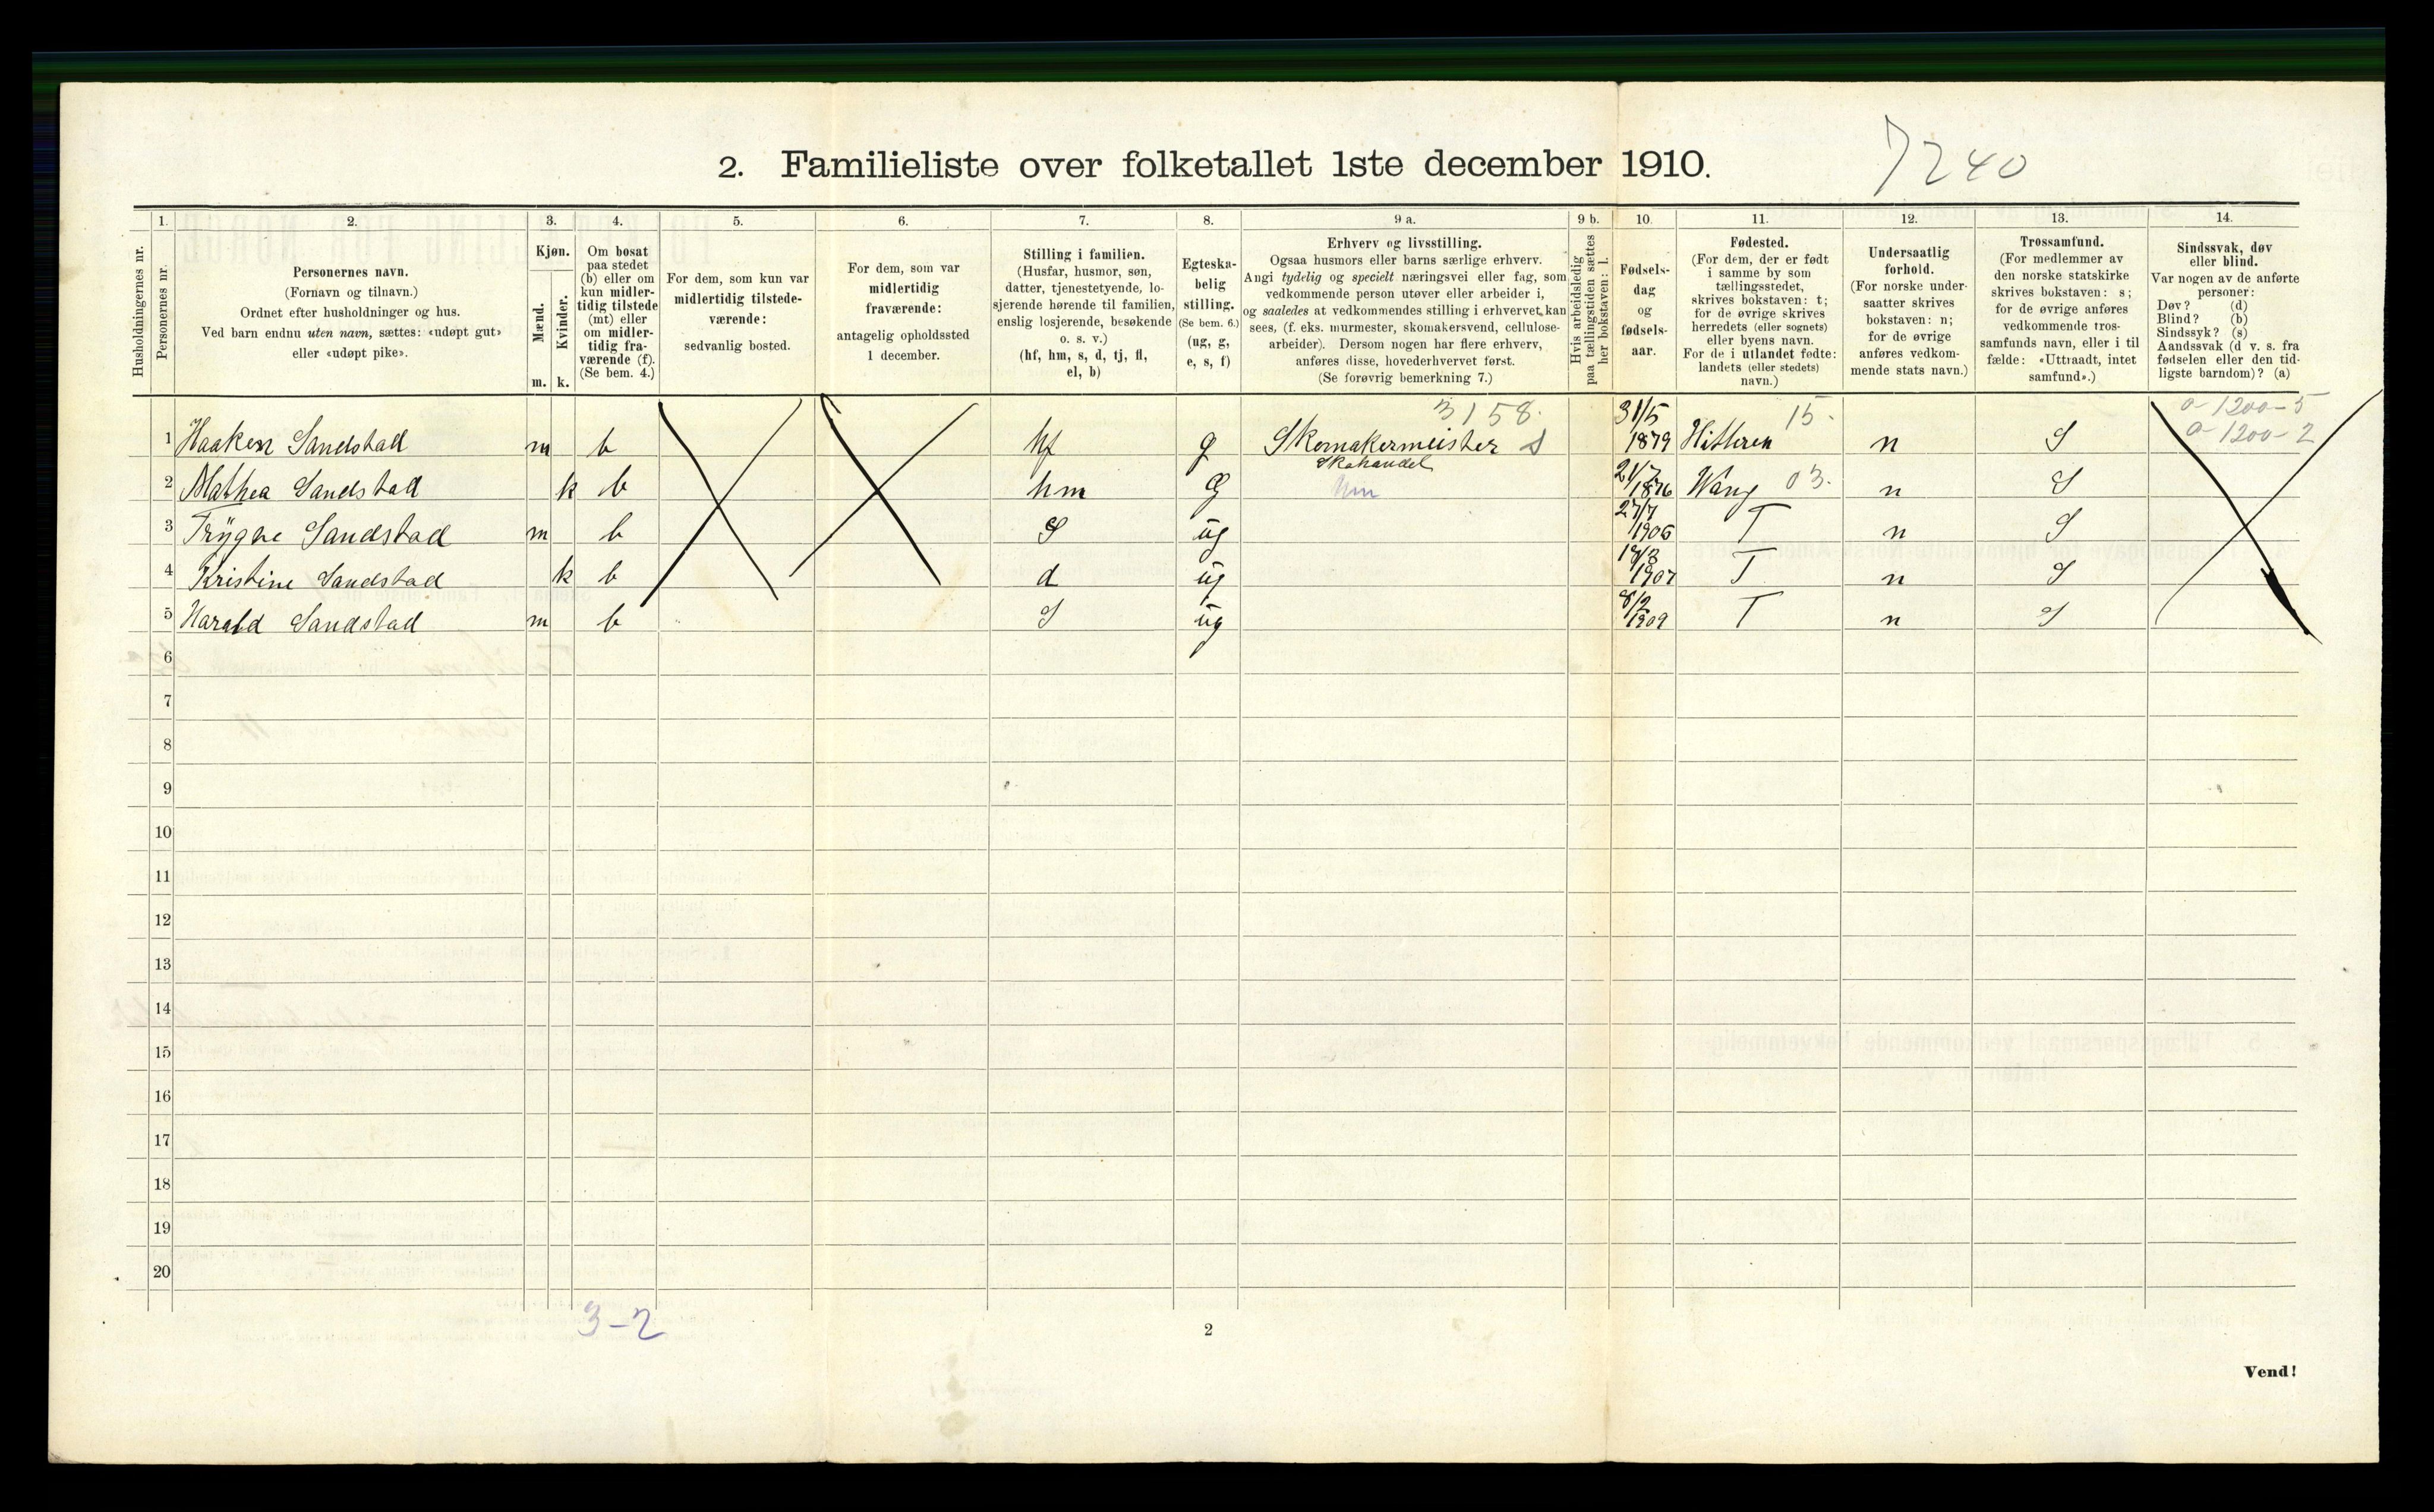 2. Familieliste over folketallet 1ste december 1910.
7240
Husholdningernes nr.
1.
Personernes nr.
2.
Personernes navn.
(Fornavn og tilnavn.)
Ordnet efter husholdninger og hus.
Ved barn endnu uten navn, sættes: «udøpt gut»
eller «udøpt pike».
3.
Kjøn.
Mænd.
Kvinder.
m. k.
4.
Om bosat
paa stedet
(b) eller om
kun midler-
tidig tilstede
(mt) eller
om midler-
tidig fra-
værende (f).
(Se bem. 4.)
5.
For dem, som kun var
midlertidig tilstede-
værende:
sedvanlig bosted.
6.
For dem, som var
midlertidig
fraværende:
antagelig opholdssted
1 december.
7.
Stilling i familien.
(Husfar, husmor, søn,
datter, tjenestetyende, lo-
sjerende hørende til familien,
enslig losjerende, besøkende
o. s. v.)
(hf, hm, s, d, tj, fl,
el, b)
8.
Egteska-
belig
stilling.
(Se bem. 6.)
(ug, g,
e, s, f)
9 a.
Erhverv og livsstilling.
Ogsaa husmors eller barns særlige erhverv.
Angi tydelig og specielt næringsvei eller fag, som
vedkommende person utøver eller arbeider i,
og saaledes at vedkommendes stilling i erhvervet kan
sees, (f. eks. murmester, skomakersvend, cellulose-
arbeider). Dersom nogen har flere erhverv,
anføres disse, hovederhvervet først.
(Se forøvrig bemerkning 7.)
9 b.
Hvis arbeidsledig
paa tællingstiden sættes
her bokstaven: l.
10.
Fødsels-
dag
og
fødsels-
aar.
11.
Fødested.
(For dem, der er født
i samme by som
tællingsstedet,
skrives bokstaven: t;
for de øvrige skrives
herredets (eller sognets)
eller byens navn.
For de i utlandet fødte:
landets (eller stedets)
navn.)
12.
Undersaatlig
forhold.
(For norske under-
saatter skrives
bokstaven: n;
for de øvrige
anføres vedkom-
mende stats navn.)
13.
Trossamfund.
(For medlemmer av
den norske statskirke
skrives bokstaven: s;
for de øvrige anføres
vedkommende tros-
samfunds navn, eller i til
fælde: «Uttraadt, intet
samfund».)
14.
Sindssvak, døv
eller blind.
Var nogen av de anførte
personer:
Døv? (d)
Blind? (b)
Sindssyk? (s)
Aandssvak (d. v. s. fra
fødselen eller den tid-
ligste barndom)? (a)
3158. 15. 0-1200-5
1 Haaken Sandstad m b hf g Skomakermeister s 31/5 1879 Hitteren n S 0-1200-2
Skohandel
2 Mathea Sandstad k b hm g hm 21/7 1876 Wang 03. n S
3 Trygve Sandstad m b S ug 27/7 1906 T n S
4 Kristine Sandstad k b d ug 1907 T n S
5 Harald Sandstad m b S ug 8/2 1909 T n S
6
7
8
9
10
11
12
13
14
15
16
17
18
19
20
3-2
2
Vend!